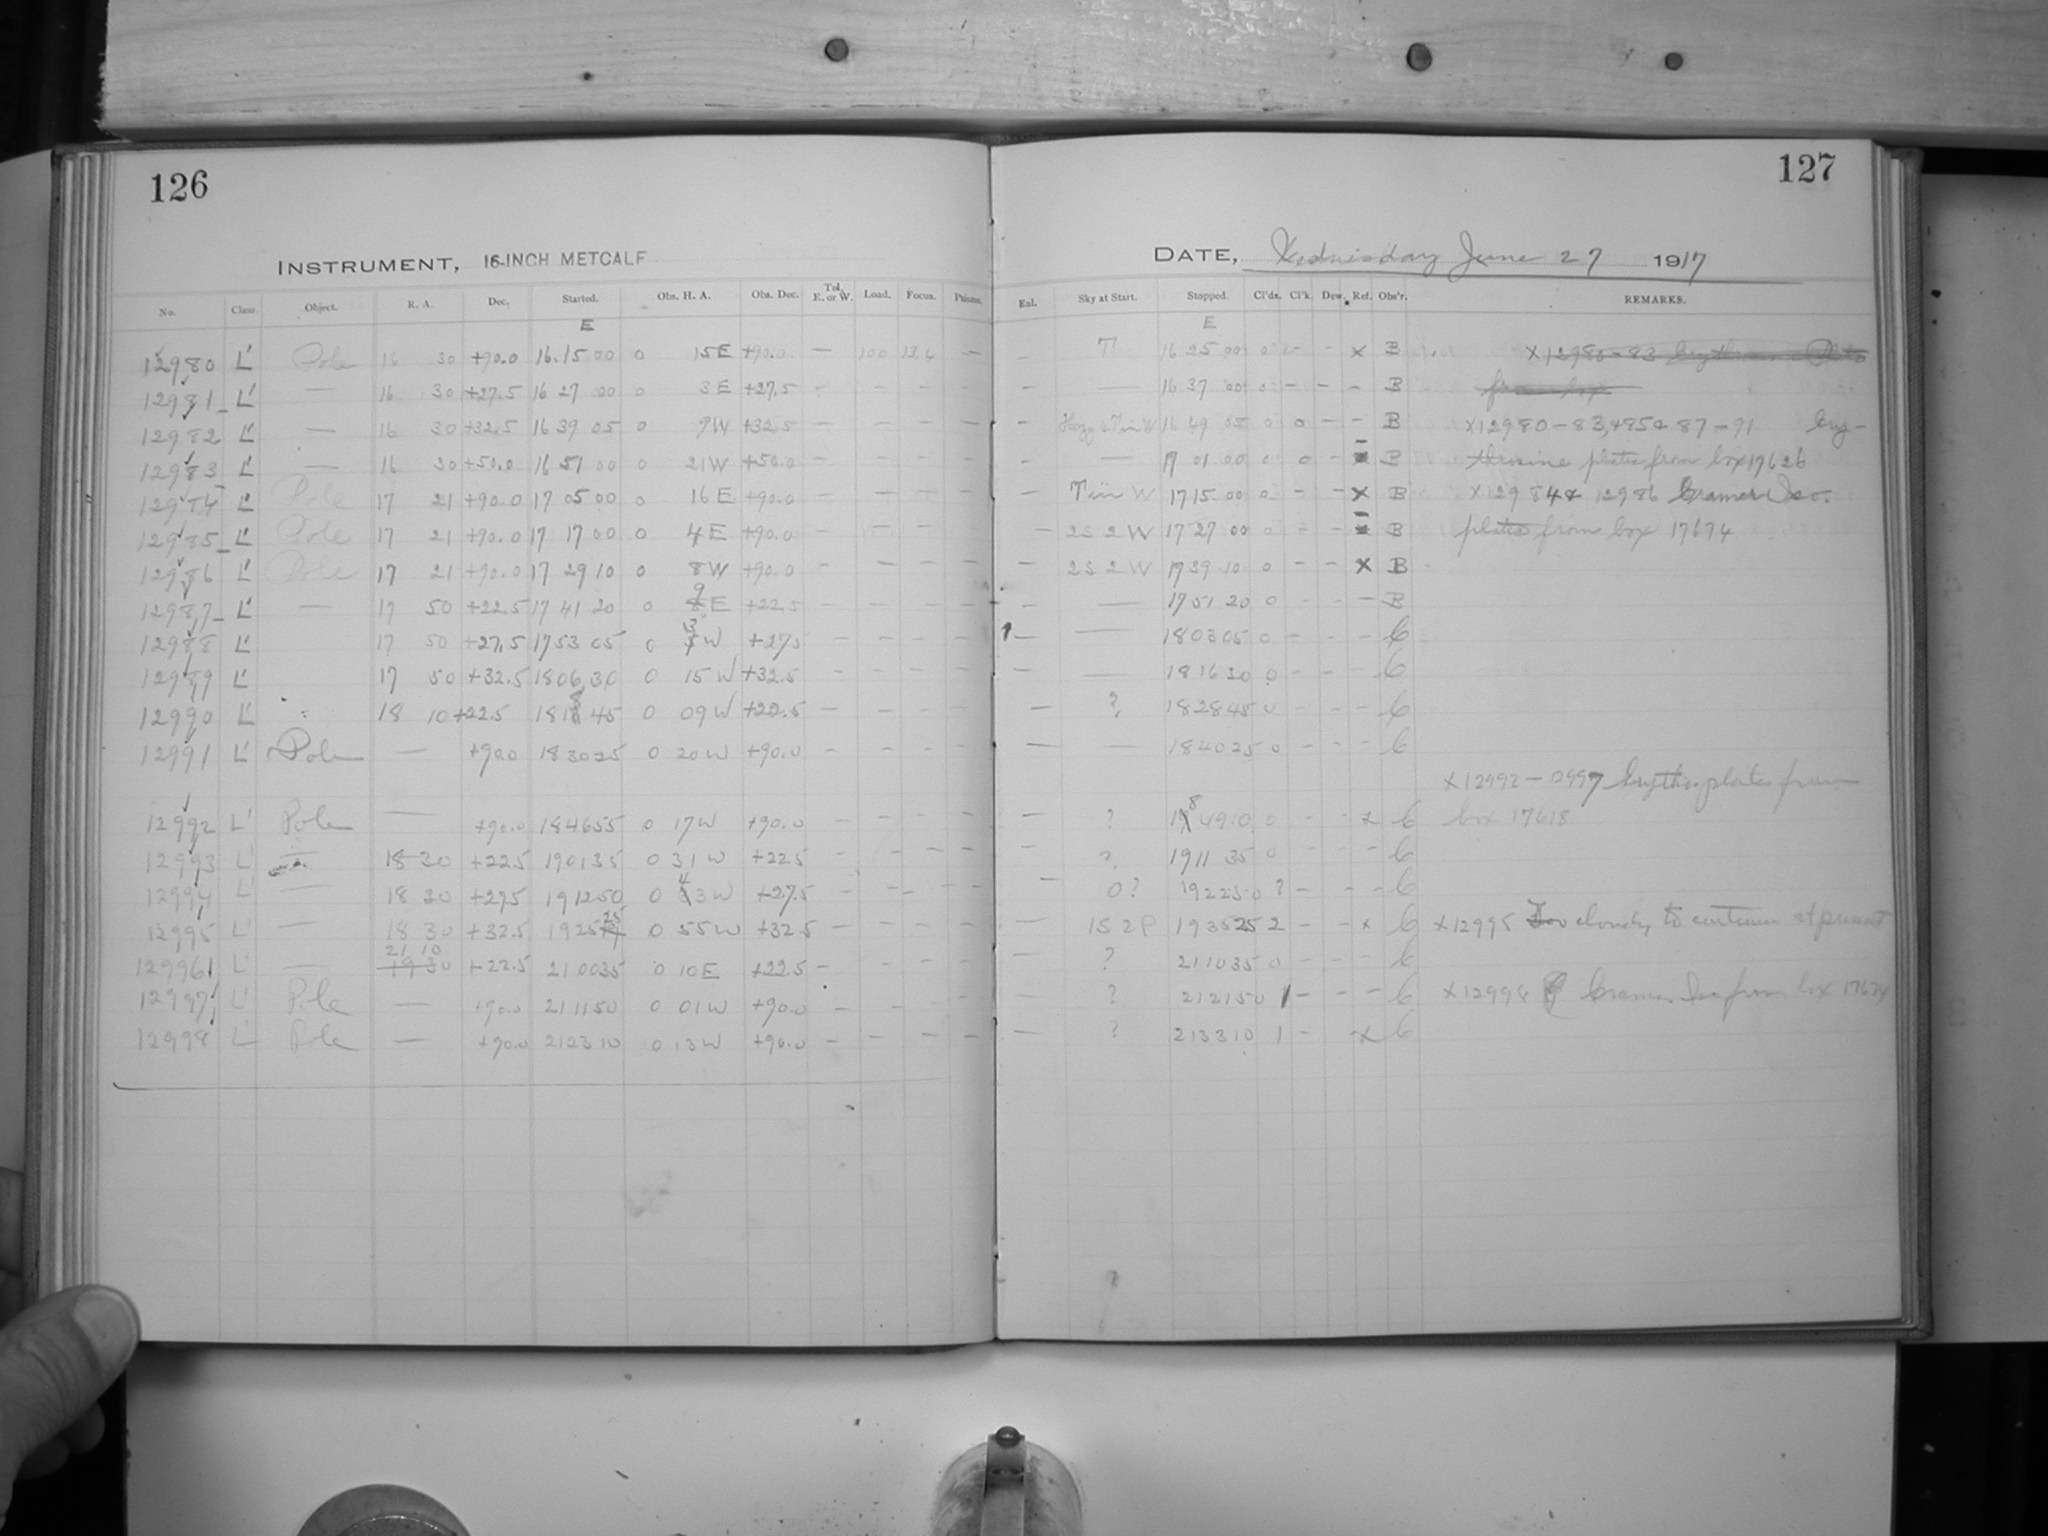 126
127
INSTRUMENT, 16-INCH METCALF
DATE, Wednesday June 27 1917
No. Class. Object. R. A. Dec. Started. Obs. H. A. Obs. Dec. Tel. E. or W. Load. Focus. Prisms.
Enl. Sky at Start. Stopped. Cl'ds. Cl'k. Dew. Ref. Obs'r. REMARKS.
E E
12980 L' Pole 16 30 +90.0 16 15 00 0 15 E +90.0 — 100 13.6 —
— T 16 25 00 0 - - x B x 12980-83
12981 L' — 16 30 +27.5 16 27 00 0 3 E +27.5 - - - -
- — 16 37 00 0 - - - B from box
12982 L' — 16 30 +32.5 16 39 05 0 9 W +32.5 - - - -
- W 16 49 05 0 0 - - B x12980-83, +85 & 87-91 Ery-
12983 L' — 16 30 +50.0 16 51 00 0 21 W +50.0 - - - -
- — 17 01 00 0 0 - B throsine plates from box 17626
12984 L' Pole 17 21 +90.0 17 05 00 0 16 E +90.0 - - - -
— W 17 15 00 0 - - x B x 12984 & 12986 Cramer Iso.
12985 L' Pole 17 21 +90.0 17 17 00 0 4 E +90.0 - - -
— 2S 2 W 17 27 00 0 - - B plates from box 17674
12986 L' Pole 17 21 +90.0 17 29 10 0 8 W +90.0 - - - -
— 2S 2 W 17 39 10 0 - - x B
12987 L' — 17 50 +22.5 17 41 20 0 9 E +22.5 - - - -
- — 17 51 20 0 - - - B
12988 L' 17 50 +27.5 17 53 05 0 3 W +27.5 - - - -
— — 18 03 05 0 - - - C
12989 L' 17 50 +32.5 18 06 30 0 15 W +32.5 - - - -
— — 18 16 30 0 - - - C
12990 L' 18 10 +22.5 18 18 45 0 09 W +22.5 - - - -
— ? 18 28 45 0 - - - C
12991 L' Pole — +90.0 18 30 25 0 20 W +90.0 - - - -
— — 18 40 25 0 - - - C
x 12992-2997 Erythro. plates from
12992 L' Pole — +90.0 18 46 55 0 17 W +90.0 - - - -
— ? 18 49 10 0 - - x C box 17618
12993 L' — 18 30 +22.5 19 01 35 0 31 W +22.5 - - - -
- ? 19 11 35 0 - - - C
12994 L' — 18 30 +27.5 19 12 50 0 43 W +27.5 - - - -
— 0? 19 22 50 ? - - - C
12995 L' — 18 30 +32.5 19 25 25 0 55 W +32.5 - - - -
— 1S 2P 19 35 25 2 - - x C x 12995 Too cloudy to continue at present
21 10
12996 L' — 19 30 +22.5 21 00 35 0 10 E +22.5 - - - -
— ? 21 10 35 0 - - - C
12997 L' Pole — +90.0 21 11 50 0 01 W +90.0 - - -
— ? 21 21 50 1 - - - C x 12998 Cramer Iso from box 17674
12998 L' Pole — +90.0 21 23 10 0 13 W +90.0 - - - -
— ? 21 33 10 1 - - x C